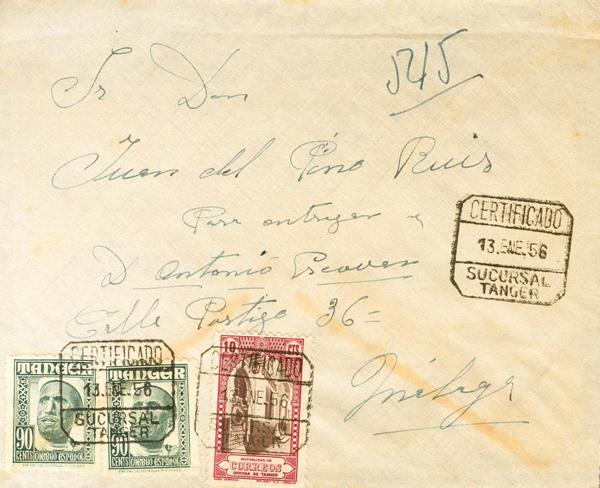 545
Sr Don
Juan del Pino Ruiz
Para entregar a
D Antonio
Calle Postigo 36=
Málaga
CERTIFICADO
13.ENE.56
SUCURSAL
TANGER
CERTIFICADO
13.ENE.56
SUCURSAL
TANGER
CERTIFICADO
13.ENE.56
SUCURSAL
TANGER
TANGER
90
CENTS CORREO ESPAÑOL
TANGER
90
CENTS CORREO ESPAÑOL
10 CTS
MUTUALIDAD DE
CORREOS
OFICINA DE TANGER